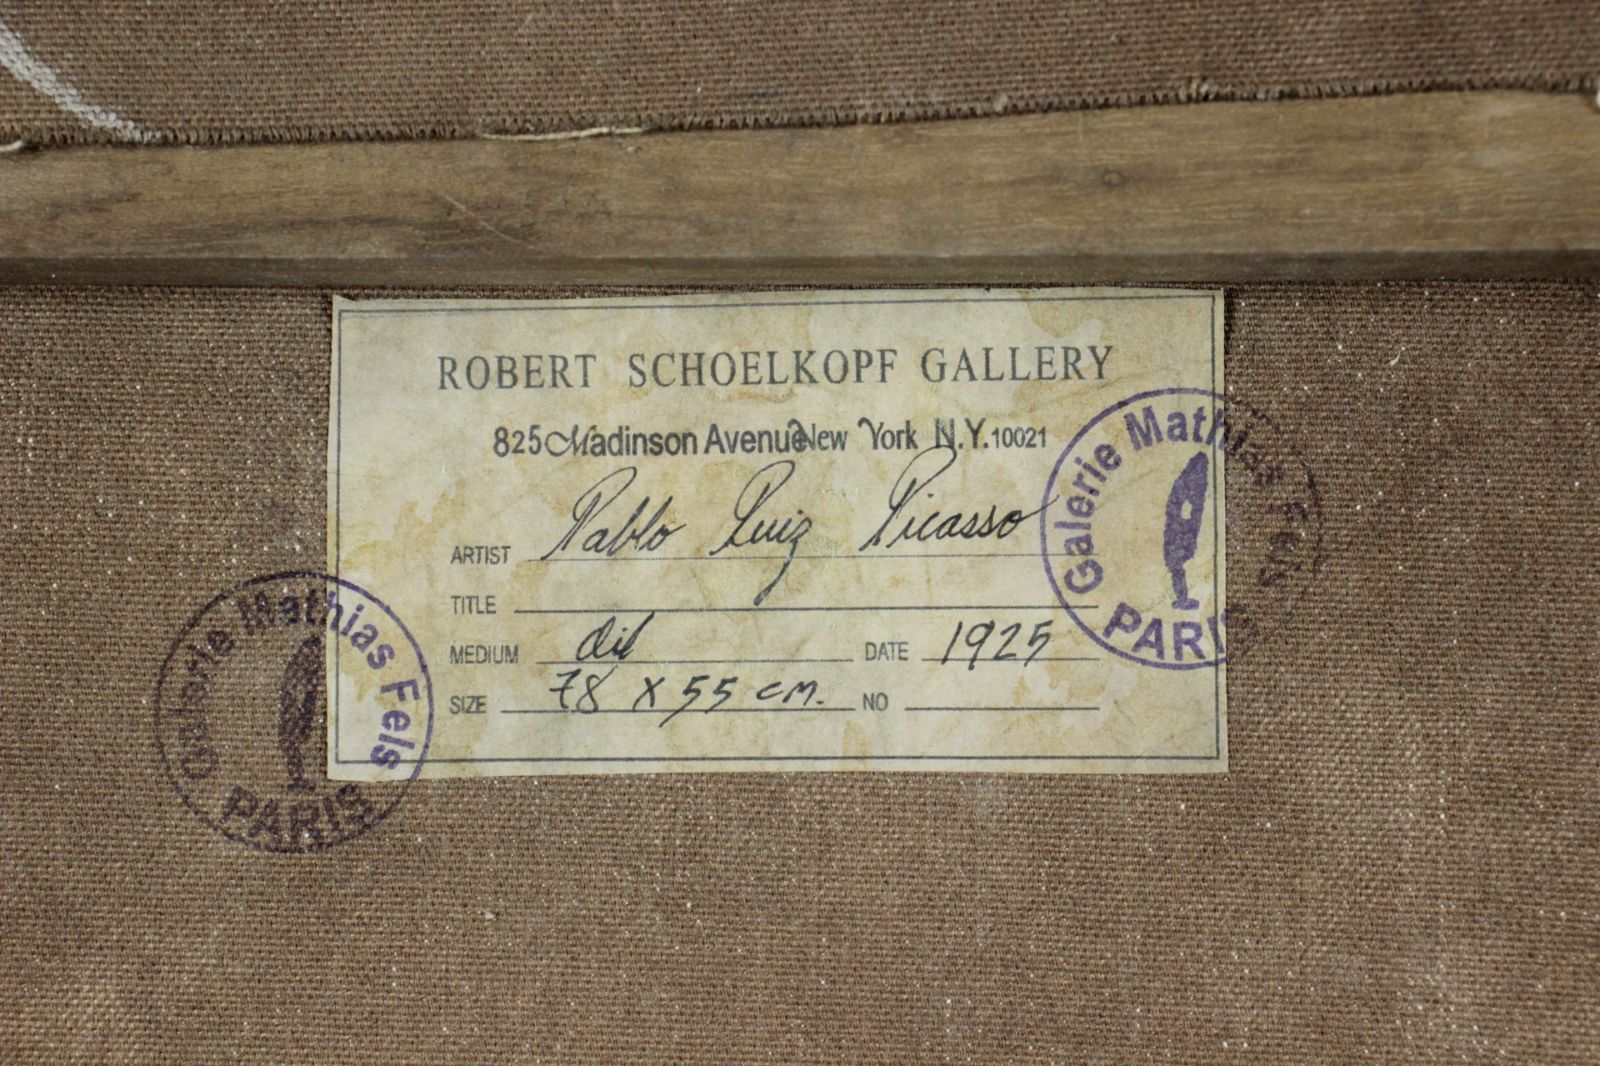 ROBERT SCHOELKOPF GALLERY
825 Madinson Avenue New York N.Y.10021
ARTIST Pablo Ruiz Picasso
TITLE
MEDIUM Oil DATE 1925
SIZE 78 x 55 cm. NO
Galerie Mathias Fels
PARIS
Galerie Mathias Fels
PARIS